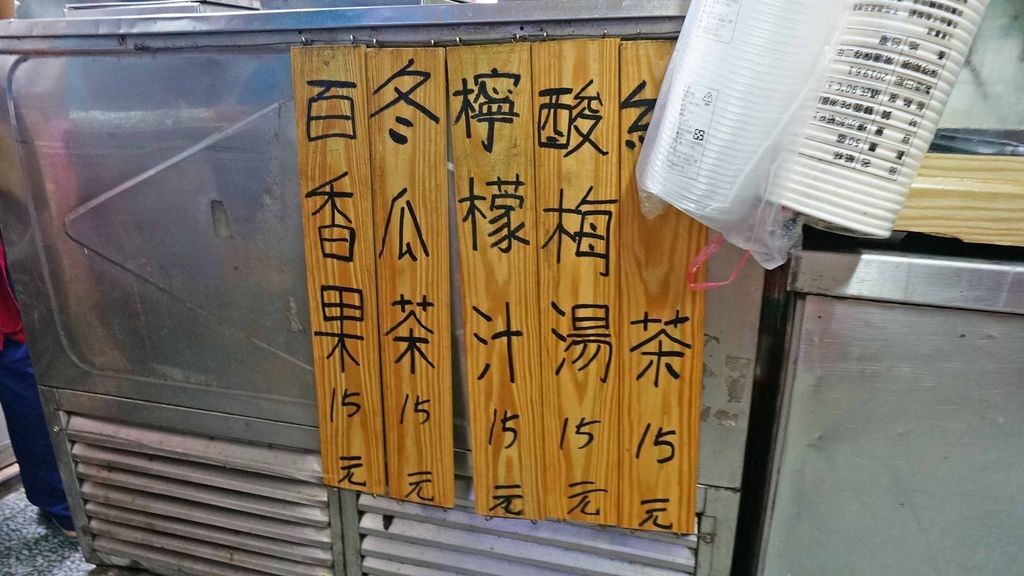 百香果15元
冬瓜茶15元
檸檬汁15元
酸梅湯15元
茶15元